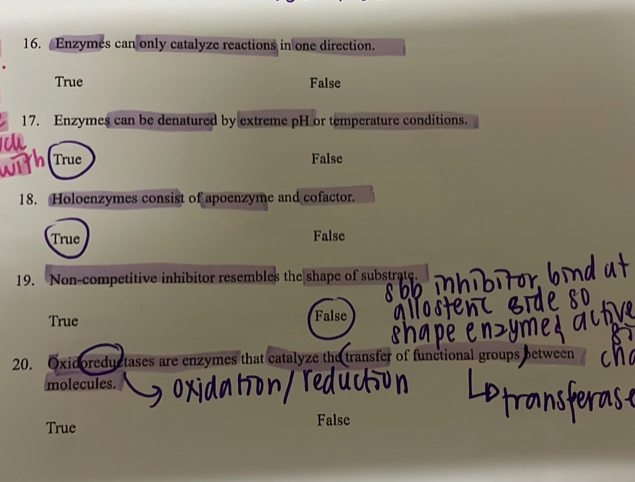 16. Enzymes can only catalyze reactions in one direction.
True False
17. Enzymes can be denatured by extreme pH or temperature conditions.
with True False
18. Holoenzymes consist of apoenzyme and cofactor.
True False
19. Non-competitive inhibitor resembles the shape of substrate.
sbb inhibitor bind at
True False allosteric side so
shape enzymed active
20. Oxidoreductases are enzymes that catalyze the (transfer of functional groups) between
molecules. oxidation/reduction
transferase
True False